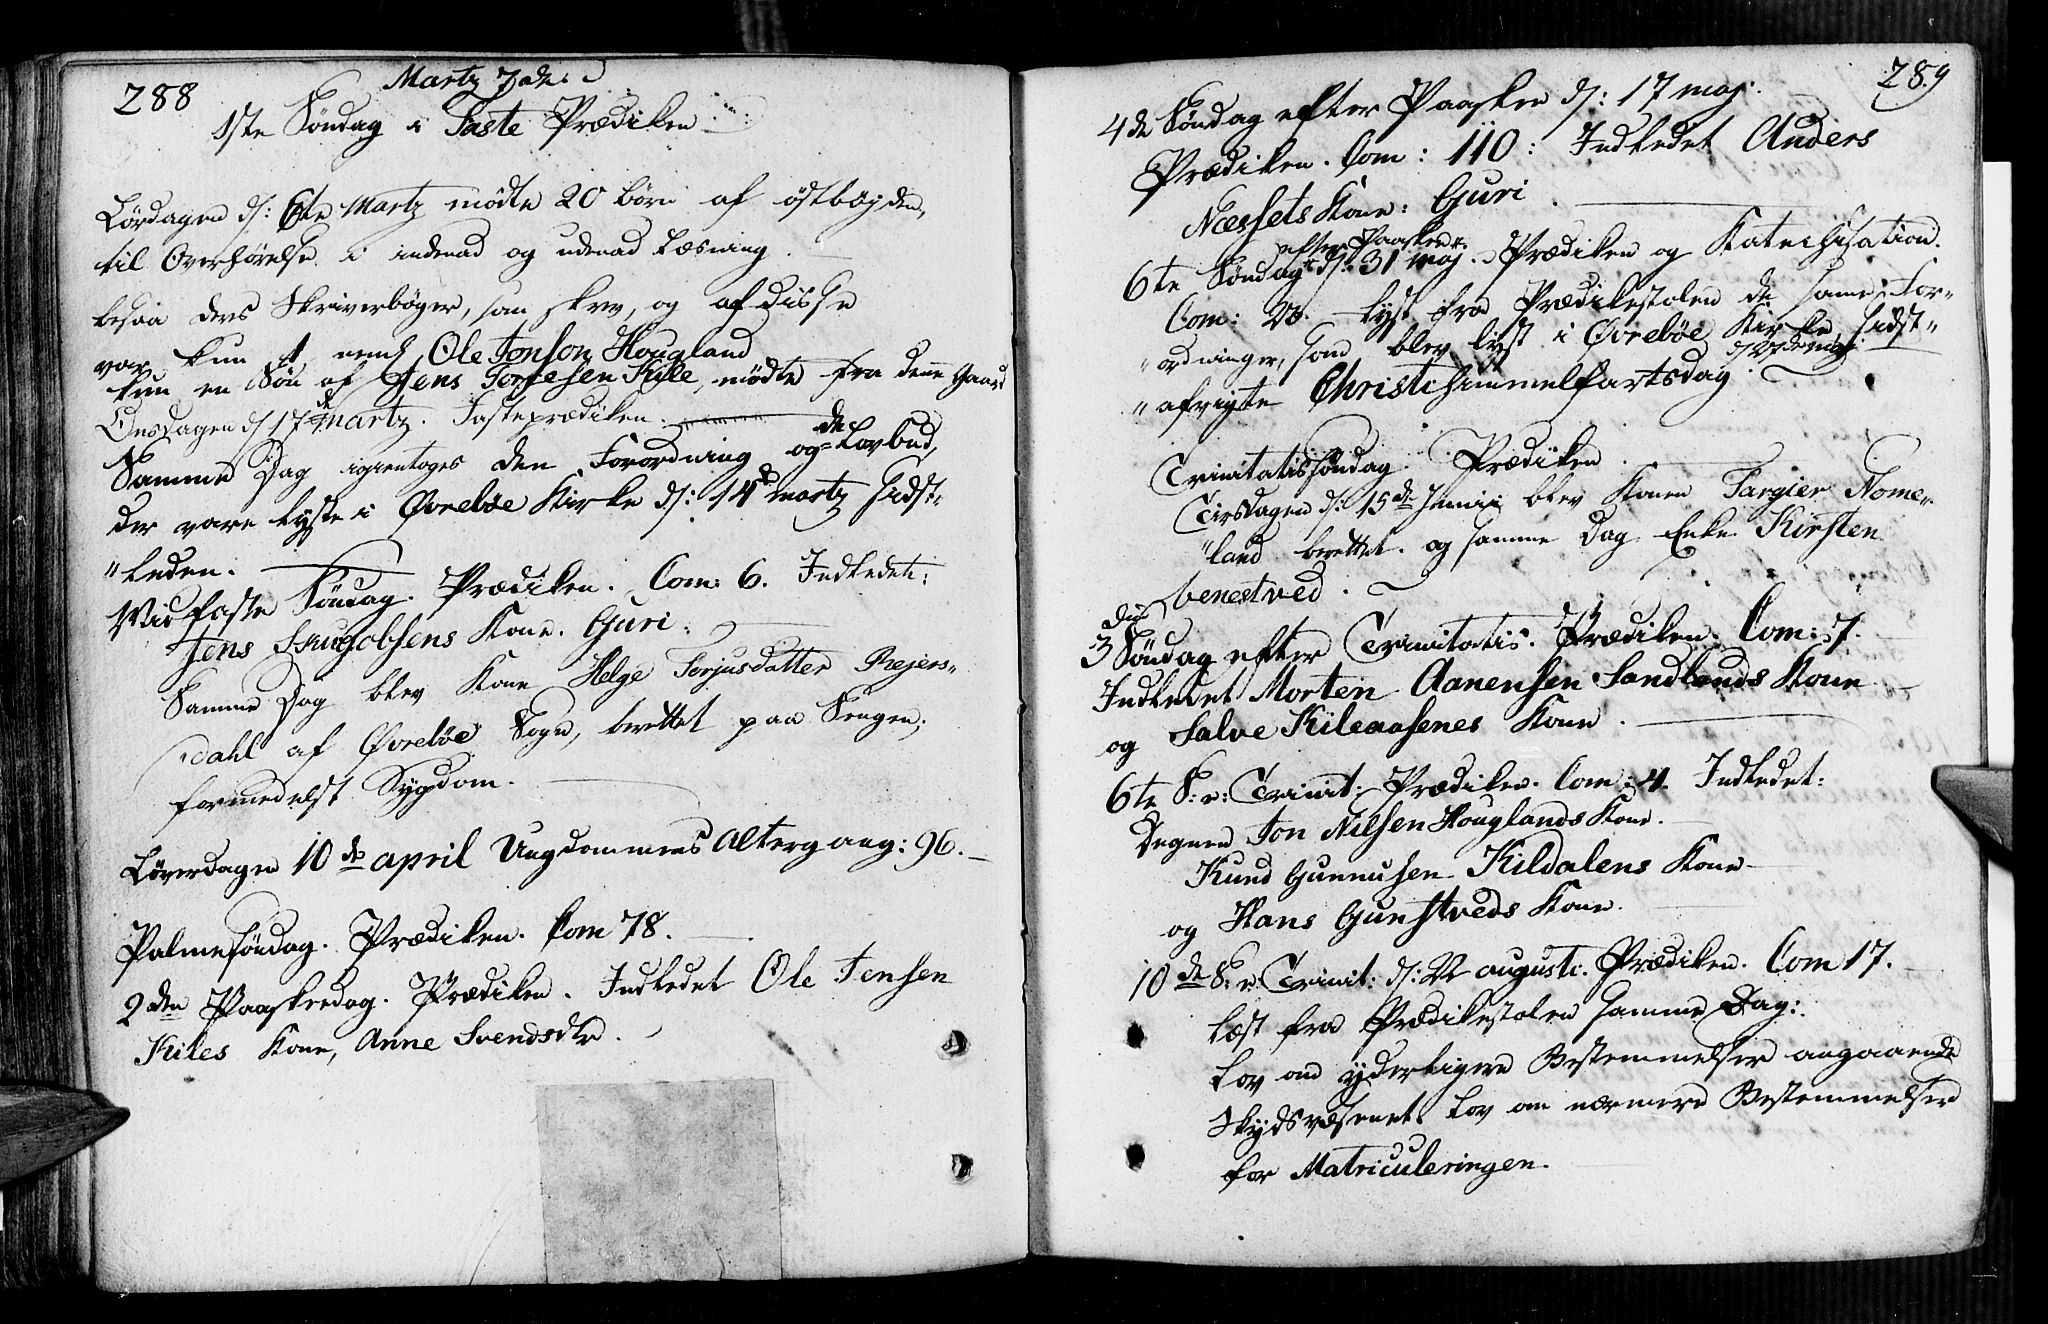 288
Martz 7de
1ste Søndag i Faste Prædiken
Lørdagen d: 6te Martz mødte 20 børn af østbøjden,
til Overhørelse i indenad og udenad Læsning.
besaa deres Skriverbøger, som skrev, og af disse
var kun 1 neml Ole Jonson Hougland
kun en Søn af Jens Torjesen Kile, mødte fra denne Gaard
Onsdagen d 17de Martz. Fasteprædiken.
Samme Dag igientoges den Forordning og de Lovbud,
der vare lyste i Øvrebøe Kirke d: 14de Martz sidst-
"leden.
Midfaste Søndag. Prædiken. Com: 6. Indledet:
Jens Kone. Guri.
Samme Dag blev Kone Helge Torjusdatter Rejers-
dahl af Øvrebøe Sogn, berettet paa Sengen,
formedelst Sygdom.
Løverdagen 10de april Ungdommens Altergang: 96.
Palmesøndag. Prædiken. Com 78.
2den Paaskedag. Prædiken. Indledet Ole Jensen
Kiles Kone, Anne Svendsdtr.
289
4de Søndag efter Paasken d: 17 maj.
Prædiken. Com: 110: Indledet Anders
Næssets Kone: Guri.
6te Søndag efter Paasken d: 31 maj. Prædiken og Katechisation.
Com: 23. lyst fra Prædikestolen de samme For-
"ordninger, som blev lyst i Øvrebøe Kirke, sidst-
"afvigte Christi himmelfartsdag d 27de maj
Trinitatissøndag. Prædiken.
Tirsdagen d: 15de Junii blev Konen Targier Home-
"land berettet. og samme Dag Enke Kirsten
benestved.
Din 3 Søndag efter Trinitatis. Prædiken. Com: 7.
Indledet Morten Aanensen Sandlands Kone
og Salve Kileaasenes Kone.
6te S: e: Trinit: Prædiken. Com: 4. Indledet:
Degnen Jon Nilsen Houglands Kone.
Knud Gunnusen Kildalens Kone
og Hans Gunstveds Kone.
10de S: e: Trinit: d: 22 augusti. Prædiken. Com 17.
Læst fra Prædikestolen samme Dag:
Lov om yderligere Bestemmelser angaaende
Skydsvæsenet. Lov om nærmere Bestemmelser
for Matriculeringen.